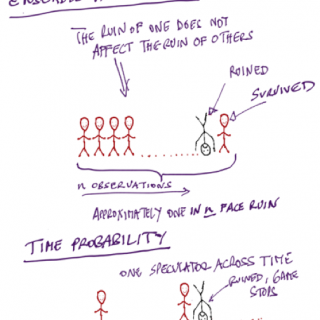 ENSEMBLE
THE RUIN OF ONE DOES NOT
AFFECT THE RUIN OF OTHERS
RUINED
SURVIVED
n OBSERVATIONS
APPROXIMATELY ONE IN n FACE RUIN
TIME PROBABILITY
ONE SPECULATOR ACROSS TIME
RUINED, GAME
STOPS